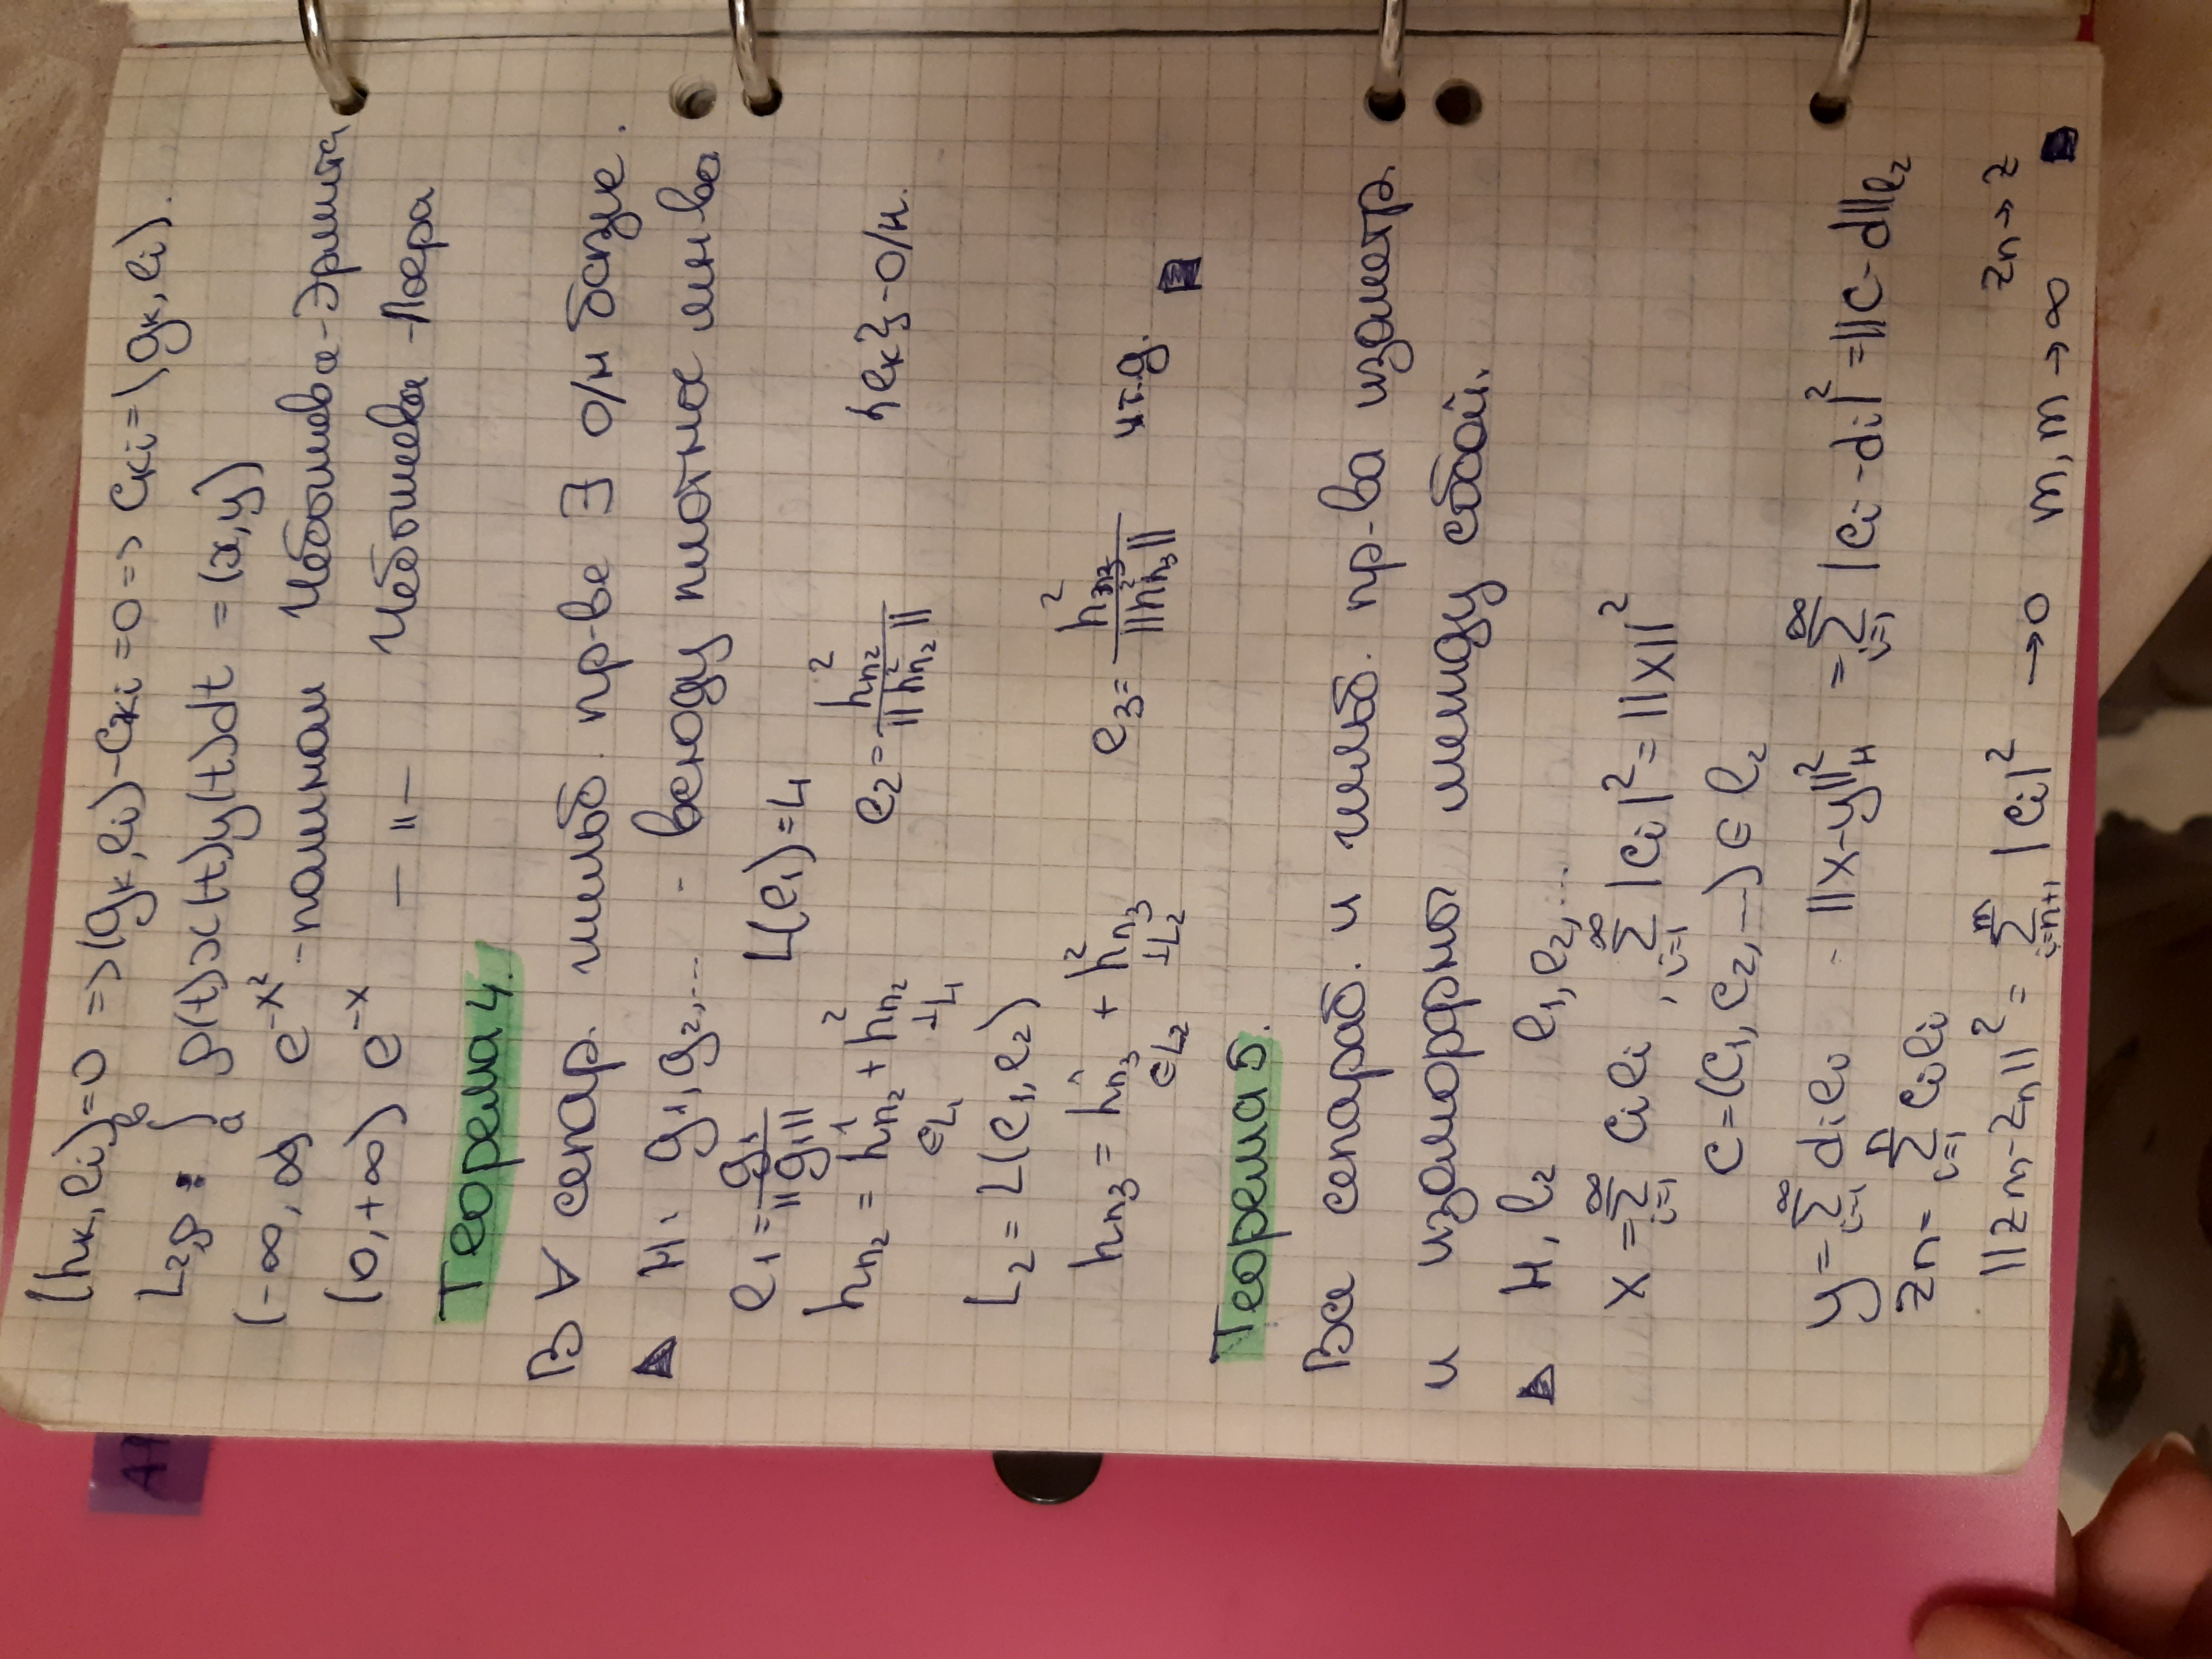 (hₖ, eᵢ) = 0 => (gₖ, eᵢ) - cₖᵢ = 0 => cₖᵢ = (gₖ, eᵢ).
L₂,ρ : ∫ₐᵇ ρ(t)x(t)y(t)dt = (x, y)
(-∞, ∞) e^{-x²} - полином Чебышева-Эрмита
(0, +∞) e^{-x} - " - Чебышева-Лагера
Теорема 4.
В ∀ сепар. гильб. пр-ве ∃ о/н базис.
▲ H, g₁, g₂, ... - всюду плотное мн-во
e₁ = g₁/||g₁|| L(e₁) = L₁
hₙ₂ = h¹ₙ₂ + h²ₙ₂ e₂ = h²ₙ₂/||h²ₙ₂|| {eₖ} - о/н.
∈L₁ ⊥L₁
L₂ = L(e₁, e₂)
hₙ₃ = h¹ₙ₃ + h²ₙ₃ e₃ = h²ₙ₃/||h²ₙ₃|| и т.д. ■
∈L₂ ⊥L₂
Теорема 5.
Все сепараб. и гильб. пр-ва изометр.
и изоморфны между собой.
▲ H, l₂ e₁, e₂, ...
x = ∑_{i=1}^{∞} cᵢeᵢ, ∑_{i=1}^{∞} |cᵢ|² = ||x||²
c = (c₁, c₂, ...) ∈ l₂
y = ∑_{i=1}^{∞} dᵢeᵢ - ||x-y||²_H = ∑_{i=1}^{∞} |cᵢ-dᵢ|² = ||c-d||_{l₂}
zₙ = ∑_{i=1}^{n} cᵢeᵢ
||zₘ-zₙ||² = ∑_{i=n+1}^{m} |cᵢ|² → 0 m, n → ∞ zₙ → z ■